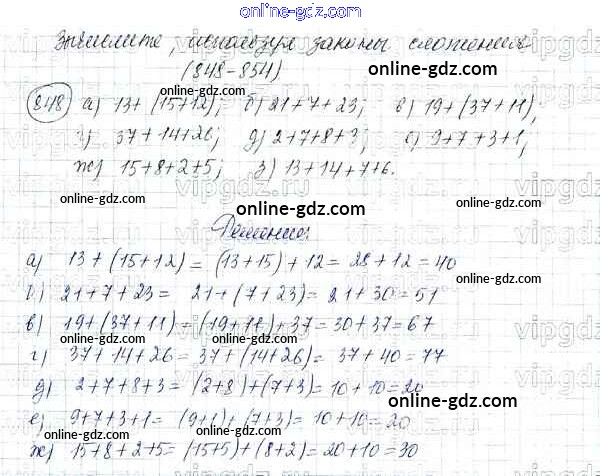 online-gdz.com
Вычислите, используя законы сложения
(848-854)
online-gdz.com
848 а) 13+(15+12); б) 21+7+23; в) 19+(37+11);
г) 37+14+26; д) 2+7+8+3; е) 9+7+3+1;
ж) 15+8+2+5; з) 13+14+7+6.
online-gdz.com
online-gdz.com
Решение:
а) 13+(15+12)=(13+15)+12=28+12=40
б) 21+7+23= 21+(7+23)=21+30=51
в) 19+(37+11)=(19+11)+37=30+37=67
г) 37+14+26=37+(14+26)= 37+40=77
д) 2+7+8+3= (2+8)+(7+3)=10+10=20
е) 9+7+3+1= (9+1)+(7+3)=10+10=20
ж) 15+8+2+5=(15+5)+(8+2)=20+10=30
online-gdz.com
online-gdz.com
online-gdz.com
online-gdz.com
online-gdz.com
online-gdz.com